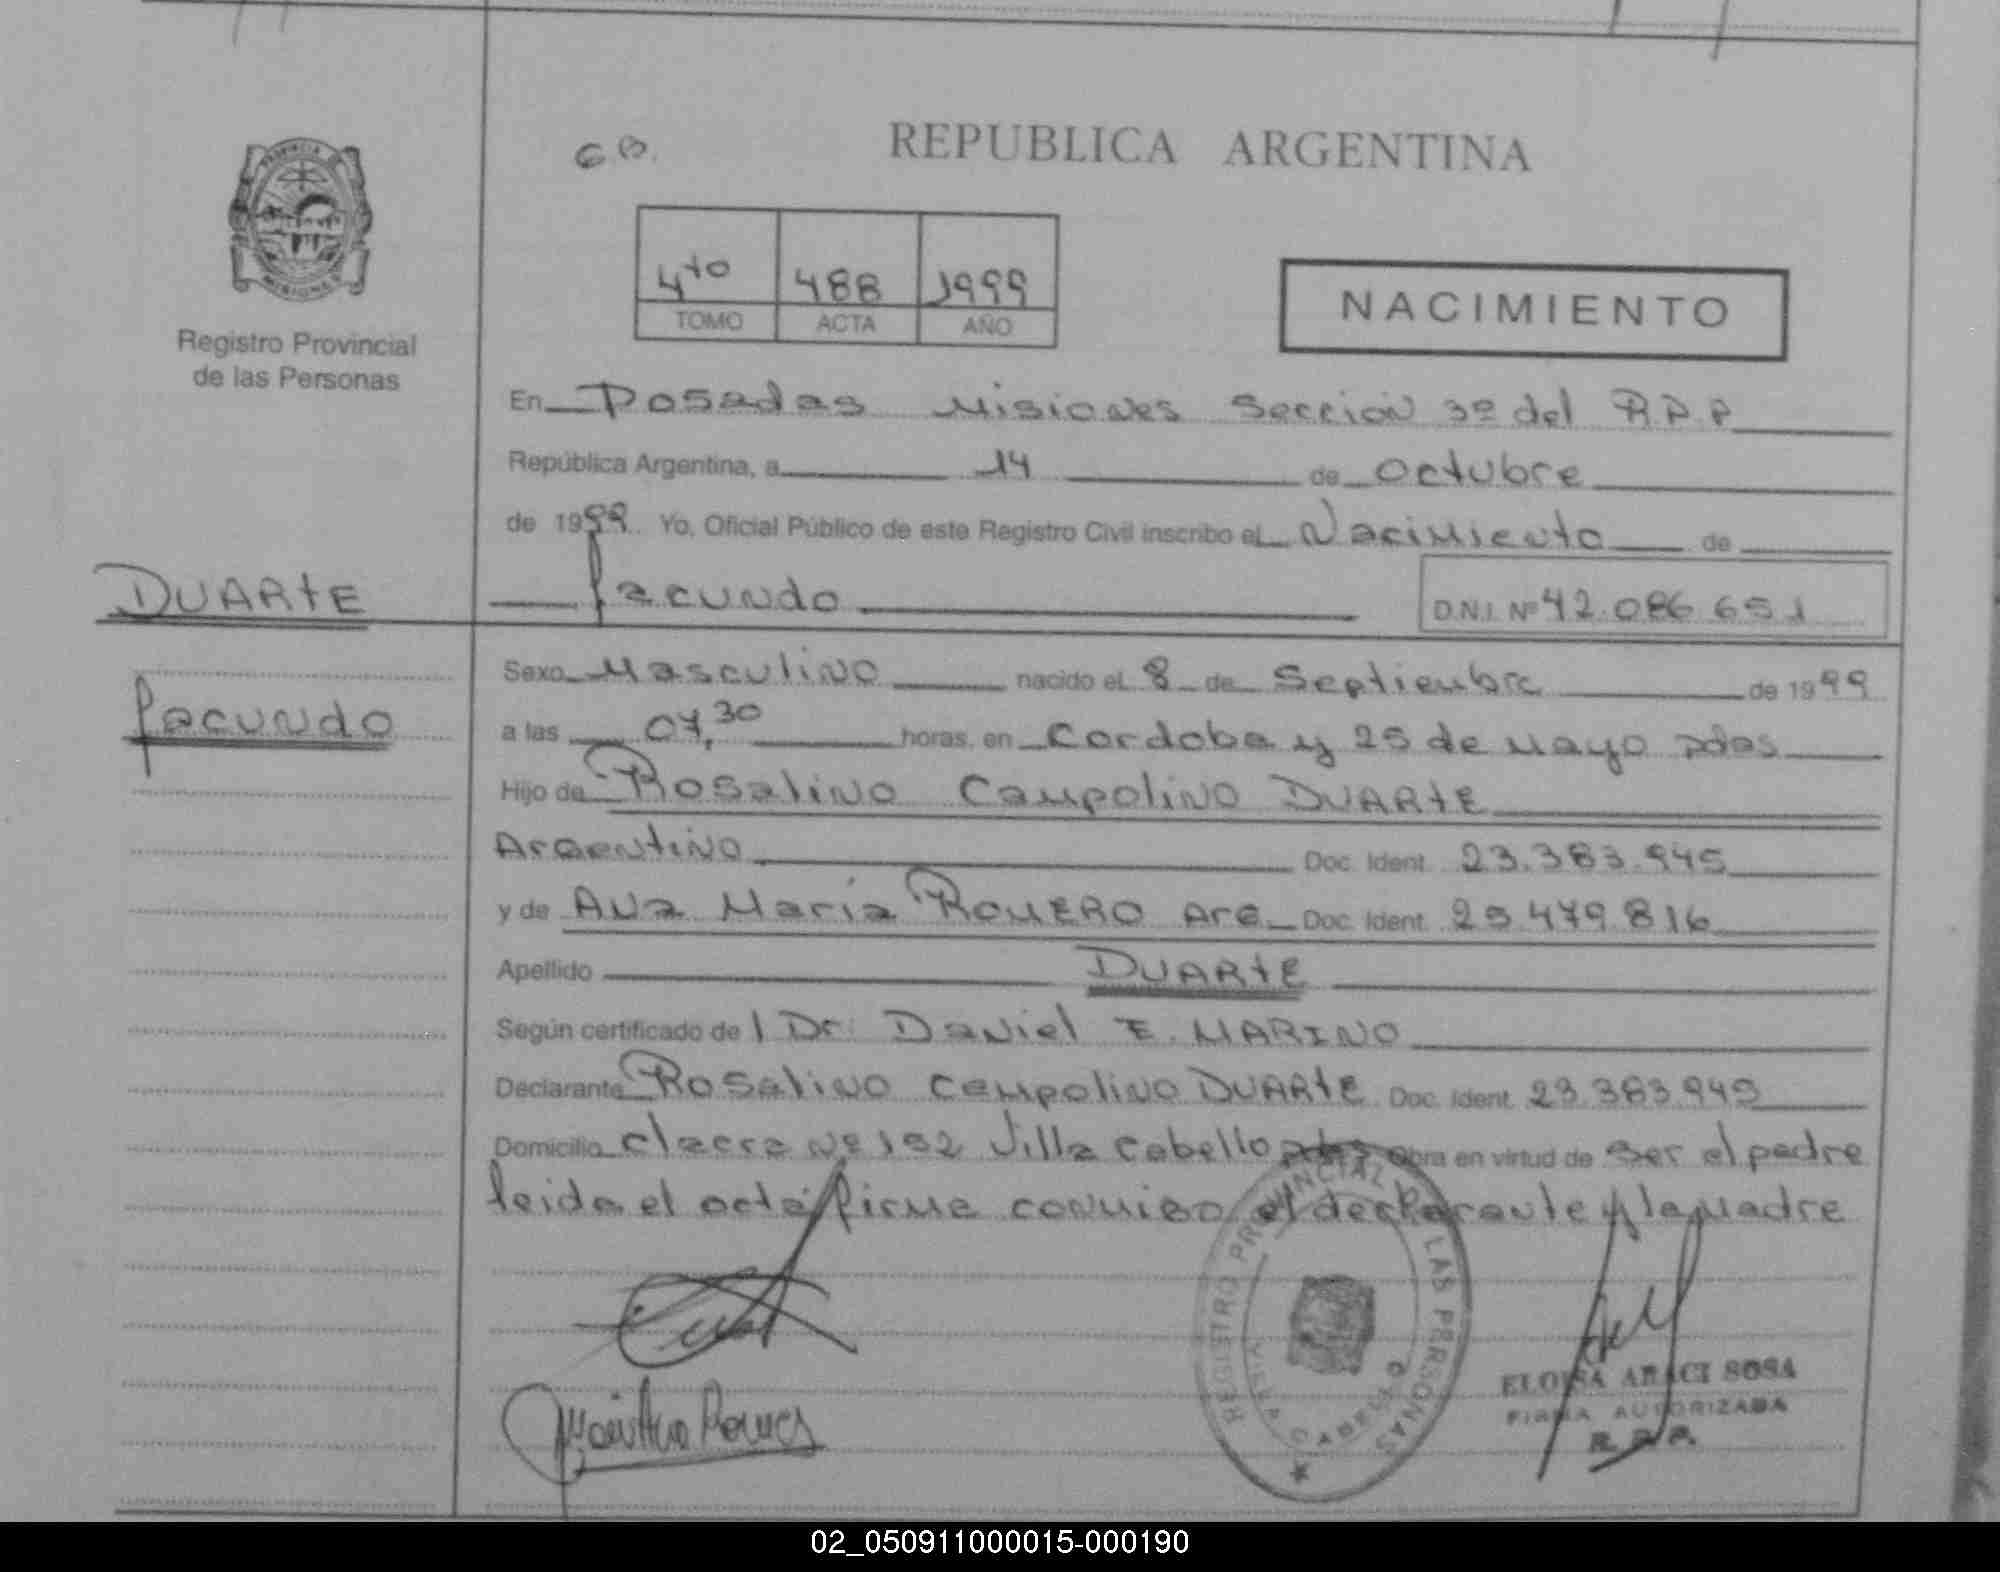 REPUBLICA ARGENTINA
4to 488 1999
TOMO ACTA AÑO
NACIMIENTO
PROVINCIA DE MISIONES
Registro Provincial
de las Personas
En Posadas Misiones Sección 3º del R.P.P
República Argentina, a 14 de octubre
de 1999 Yo, Oficial Público de este Registro Civil inscribo el Nacimiento de
DUARTE
facundo
D.N.I. Nº 42.086.651
facundo
Sexo Masculino nacido el 8 de Septiembre de 1999
a las 07,30 horas, en Cordoba y 25 de mayo pdas
Hijo de Rosalino Campolino DUARTE
Argentino Doc. Ident. 23.383.945
y de Ana Maria ROMERO Arg. Doc. Ident. 25.479.816
Apellido DUARTE
Según certificado de l Dr. Daniel E. MARINO
Declarante Rosalino Campolino DUARTE Doc. Ident. 23.383.945
Domicilio chacra Nº 192 Villa Cabello pdas Obra en virtud de ser el padre
leida el acta firma conmigo el declarante y la madre
REGISTRO PROVINCIAL DE LAS PERSONAS
ELOISA ARACI SOSA
FIRMA AUTORIZADA
R. P. P.
02_050911000015-000190